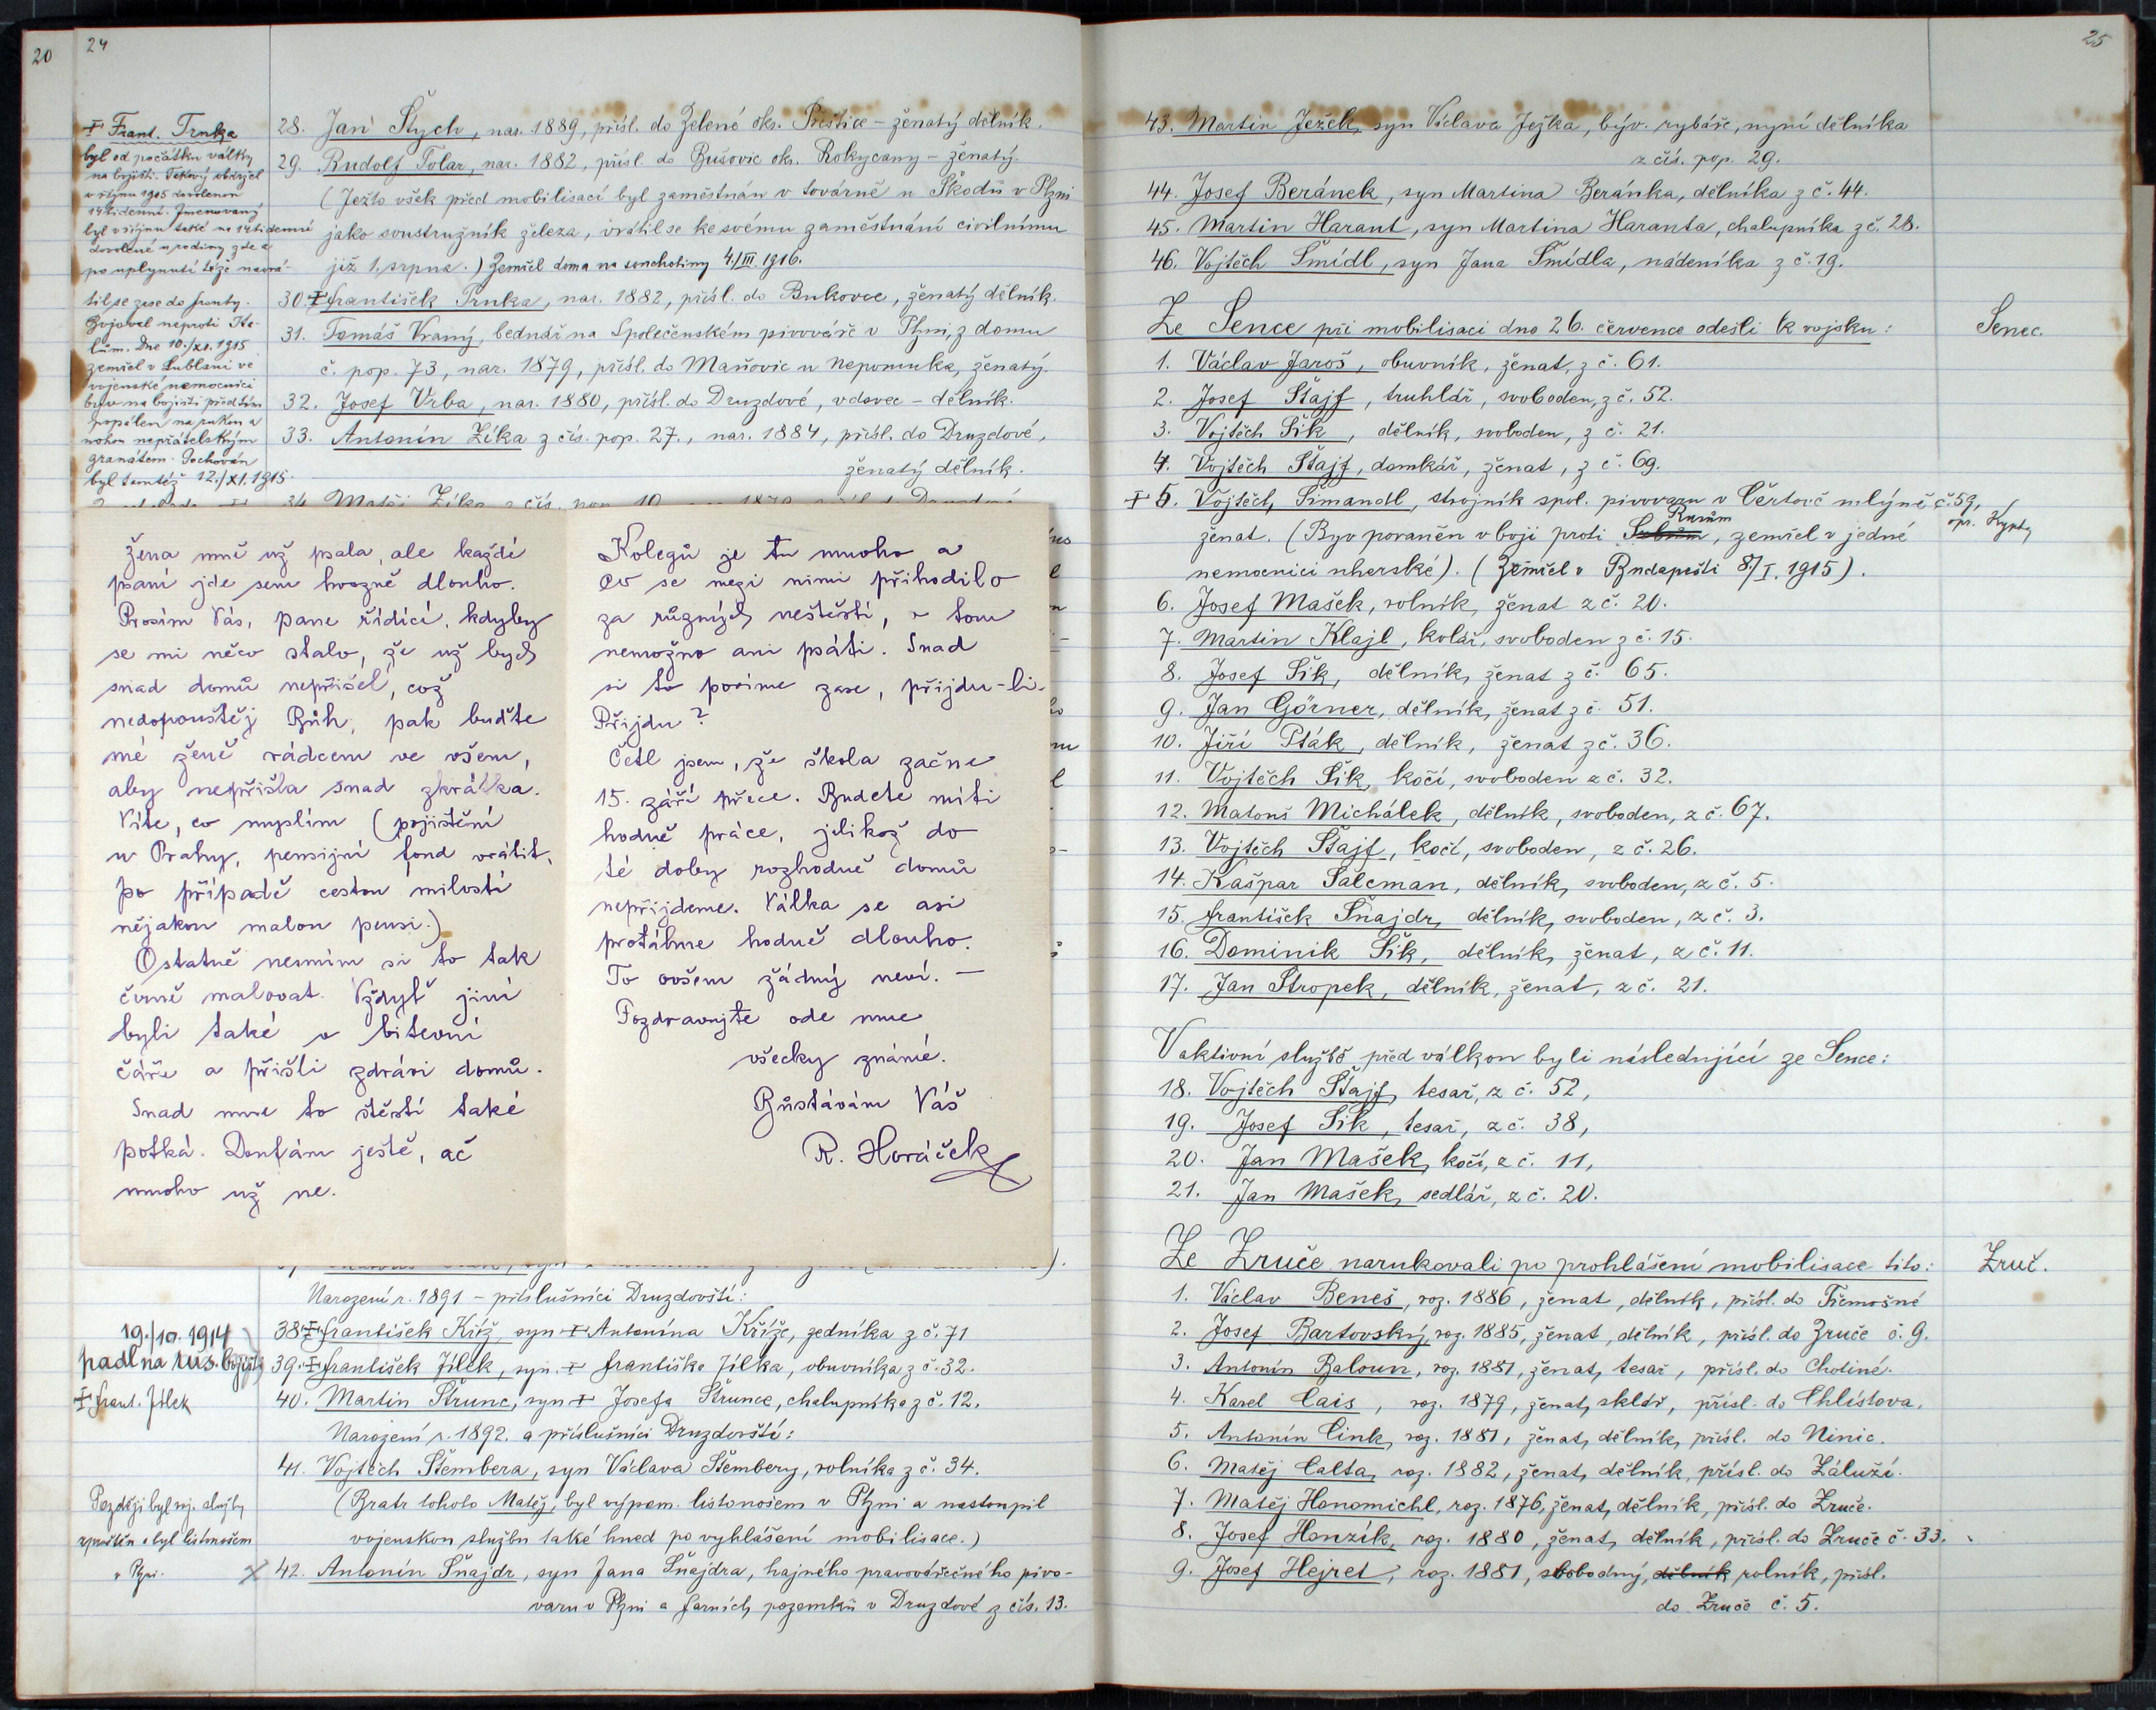 20
24
✝ Frant. Trnka
byl od počátku války
na bojišti. Takový obdržel
v říjnu 1915 dovolenou
14tidenní. Jmenovaný
byl v říjnu také na 14tidenní
dovolené u rodiny zde a
po uplynutí téže navrá-
til se zase do fronty.
Bojoval neproti Ita-
lům. Dne 10./XI. 1915
zemřel v Lublani ve
vojenské nemocnici
byv na bojišti předtím
popálen na rukou a
nohou nepřátelským
granátem. Pochován
byl tamtéž 12./XI. 1915.
28. Jan Štych, nar. 1889, přísl. do Zelené okr. Přeštice – ženatý dělník.
29. Rudolf Tolar, nar. 1882, přísl. do Bušovic okr. Rokycany – ženatý.
(Ježto však před mobilisací byl zaměstnán v továrně u Škodů v Plzni
jako soustružník železa, vrátil se ke svému zaměstnání civilnímu
již 1. srpna.) Zemřel doma na souchotiny 4./III. 1916.
30. ✝ František Trnka, nar. 1882, přísl. do Bukovce, ženatý dělník.
31. Tomáš Vraný, bednář na Společenském pivováře v Plzni, z domu
č. pop. 73, nar. 1879, přísl. do Maňovic u Nepomuka, ženatý.
32. Josef Vrba, nar. 1880, přísl. do Druzdové, vdovec – dělník.
33. Antonín Zíka z čís. pop. 27., nar. 1884, přísl. do Druzdové,
ženatý dělník.
34. Matěj Zíka z čís. pop. 10
Žena mně už psala, ale každé
psaní jde sem hrozně dlouho.
Prosím Vás, pane řídící, kdyby
se mi něco stalo, že už bych
snad domů nepřišel, což
nedopouštěj Bůh, pak buďte
mé ženě rádcem ve všem,
aby nepřišla snad zkrátka.
Víte, co myslím (pojištění
u Prahy, pensijní fond vrátit,
po případě cestou milosti
nějakou malou pensi.)
Ostatně nesmím si to tak
černě malovat. Vždyť jiní
byli také v bitevní
čáře a přišli zdrávi domů.
Snad mne to štěstí také
potká. Doufám ještě, ač
mnoho už ne.
Kolegů je tu mnoho a
co se mezi nimi přihodilo
za různých neštěstí, o tom
nemožno ani psáti. Snad
si to povíme zase, přijdu-li.
Přijdu?
Četl jsem, že škola začne
15. září přece. Budete míti
hodně práce, jelikož do
té doby rozhodně domů
nepřijdeme. Válka se asi
protáhne hodně dlouho.
To ovšem žádný neví. –
Pozdravujte ode mne
všecky známé.
Zůstávám Váš
R. Horáček
Narození r. 1891 – příslušníci Druzdovští:
38. ✝ František Kříž, syn ✝ Antonína Kříže, zedníka z č. 71
19./10. 1914
padl na rus. bojišti
✝ Frant. Jílek
39. ✝ František Jílek, syn ✝ Františka Jílka, obuvníka z č. 32.
40. Martin Štrunc, syn ✝ Josefa Štrunce, chalupníka z č. 12.
Narození r. 1892. a příslušníci Druzdovští:
41. Vojtěch Štembera, syn Václava Štembery, rolníka z č. 34.
(Bratr tohoto Matěj, byl výpom. listonošem v Plzni a nastoupil
vojenskou službu také hned po vyhlášení mobilisace.)
Později byl voj. služby
zproštěn a byl listonošem
v Plzni.
× 42. Antonín Šnajdr, syn Jana Šnajdra, hajného pravovárečného pivo-
varu v Plzni a farních pozemků v Druzdové z čís. 13.
25
43. Martin Ježek, syn Václava Ježka, býv. rybáře, nyní dělníka
z čís. pop. 29.
44. Josef Beránek, syn Martina Beránka, dělníka z č. 44.
45. Martin Harant, syn Martina Haranta, chalupníka z č. 28.
46. Vojtěch Šmídl, syn Jana Šmídla, nádeníka z č. 19.
Ze Sence při mobilisaci dne 26. července odešli k vojsku:
Senec.
1. Václav Jaroš, obuvník, ženat, z č. 61.
2. Josef Štajf, truhlář, svoboden, z č. 52.
3. Vojtěch Šik, dělník, svoboden, z č. 21.
4. Vojtěch Štajf, domkář, ženat, z č. 69.
✝ 5. Vojtěch Šimandl, strojník spol. pivovaru v Čertově mlýně č. 59,
ženat. (Byv poraněn v boji proti Srbům Rusům, zemřel v jedné
nemocnici uherské). (Zemřel v Budapešti 8./I. 1915).
6. Josef Mašek, rolník, ženat z č. 20.
7. Martin Klajl, kolář, svoboden z č. 15.
8. Josef Šik, dělník, ženat z č. 65.
9. Jan Görner, dělník, ženat z č. 51.
10. Jiří Pták, dělník, ženat z č. 36.
11. Vojtěch Šik, kočí, svoboden z č. 32.
12. Matouš Michálek, dělník, svoboden, z č. 67.
13. Vojtěch Štajf, kočí, svoboden, z č. 26.
14. Kašpar Šalcman, dělník, svoboden, z č. 5.
15. František Šnajdr, dělník, svoboden, z č. 3.
16. Dominik Šik, dělník, ženat, z č. 11.
17. Jan Stropek, dělník, ženat, z č. 21.
V aktivní službě před válkou byli následující ze Sence:
18. Vojtěch Štajf, tesař, z č. 52,
19. Josef Šik, tesař, z č. 38,
20. Jan Mašek, kočí, z č. 11,
21. Jan Mašek, sedlář, z č. 20.
Ze Zruče narukovali po prohlášení mobilisace tito:
Zruč.
1. Václav Beneš, roz. 1886, ženat, dělník, přísl. do Třemošné
2. Josef Bartovský, roz. 1885, ženat, dělník, přísl. do Zruče č. 9.
3. Antonín Baloun, roz. 1881, ženat, tesař, přísl. do Chotiné.
4. Karel Cais, roz. 1879, ženat, sklář, přísl. do Chlístova.
5. Antonín Cink, roz. 1881, ženat, dělník, přísl. do Ninic.
6. Matěj Calta, roz. 1882, ženat, dělník, přísl. do Záluží.
7. Matěj Honomichl, roz. 1876, ženat, dělník, přísl. do Zruče.
8. Josef Honzík, roz. 1880, ženat, dělník, přísl. do Zruče č. 33.
9. Josef Hejret, roz. 1881, svobodný, dělník rolník, přísl.
do Zruče č. 5.